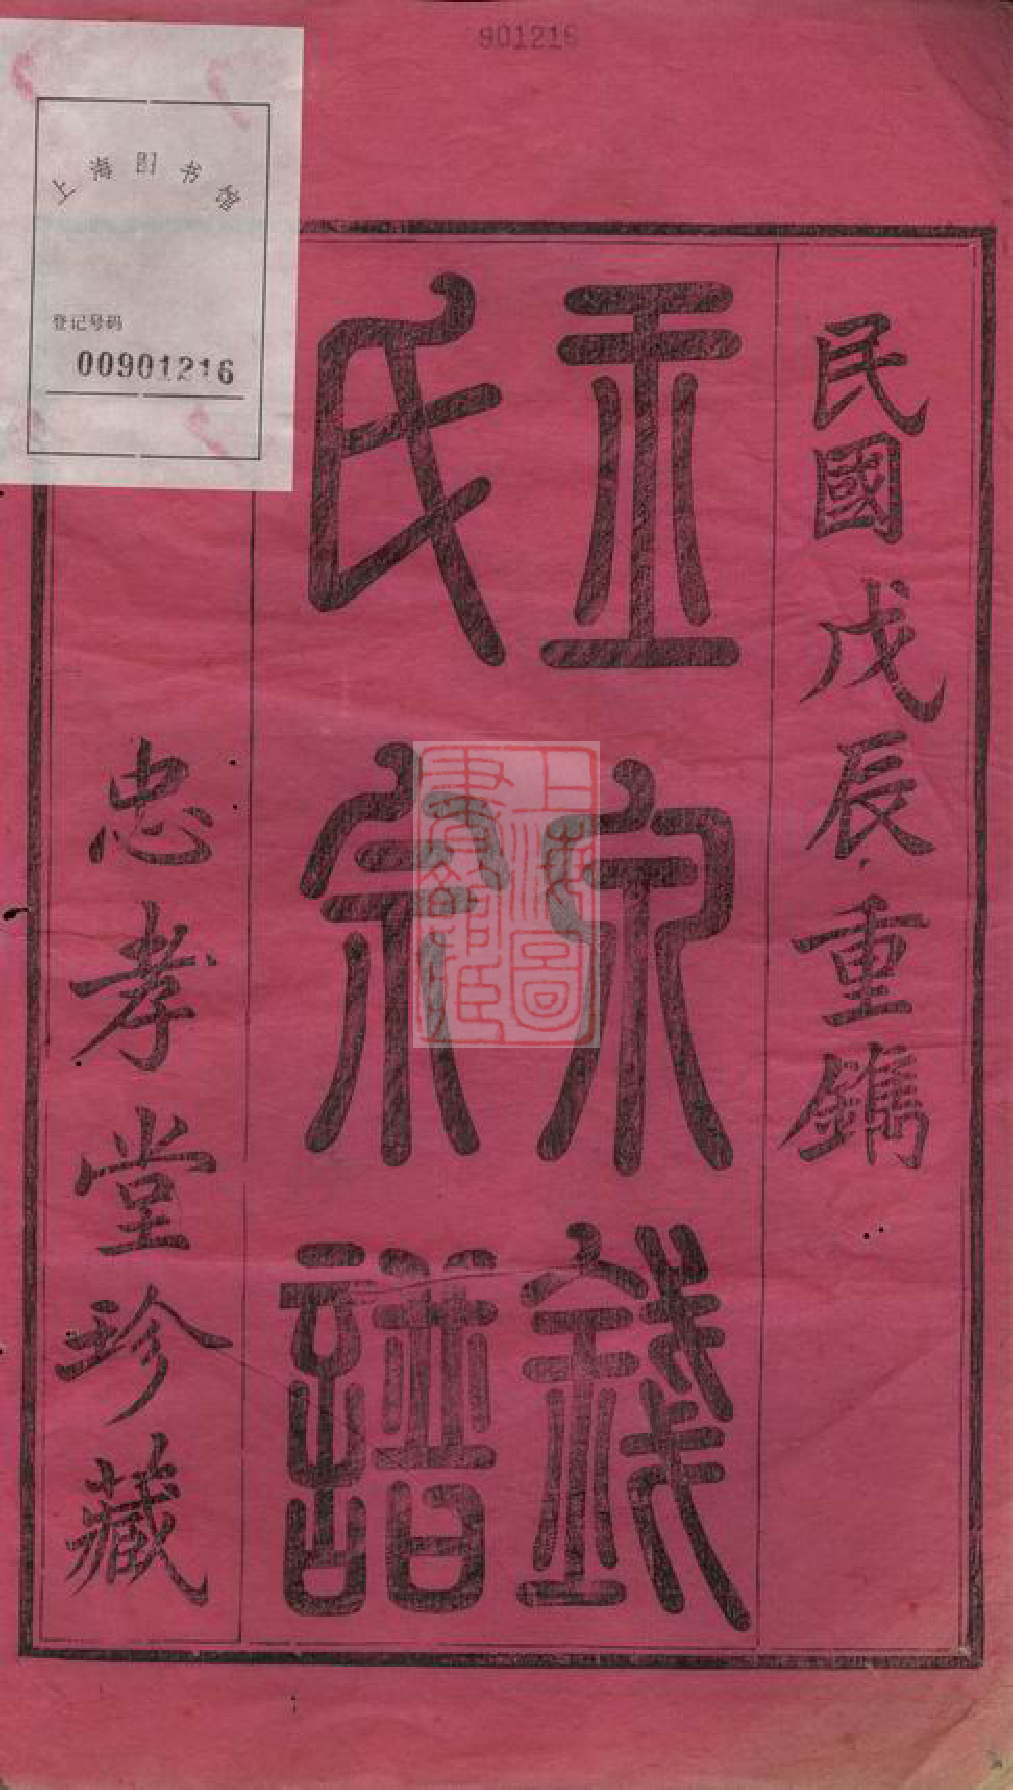 901216
上海图书馆
登记号码
00901216
民國戊辰重鐫
錢
氏宗譜
忠孝堂珍藏
上海圖
書館藏